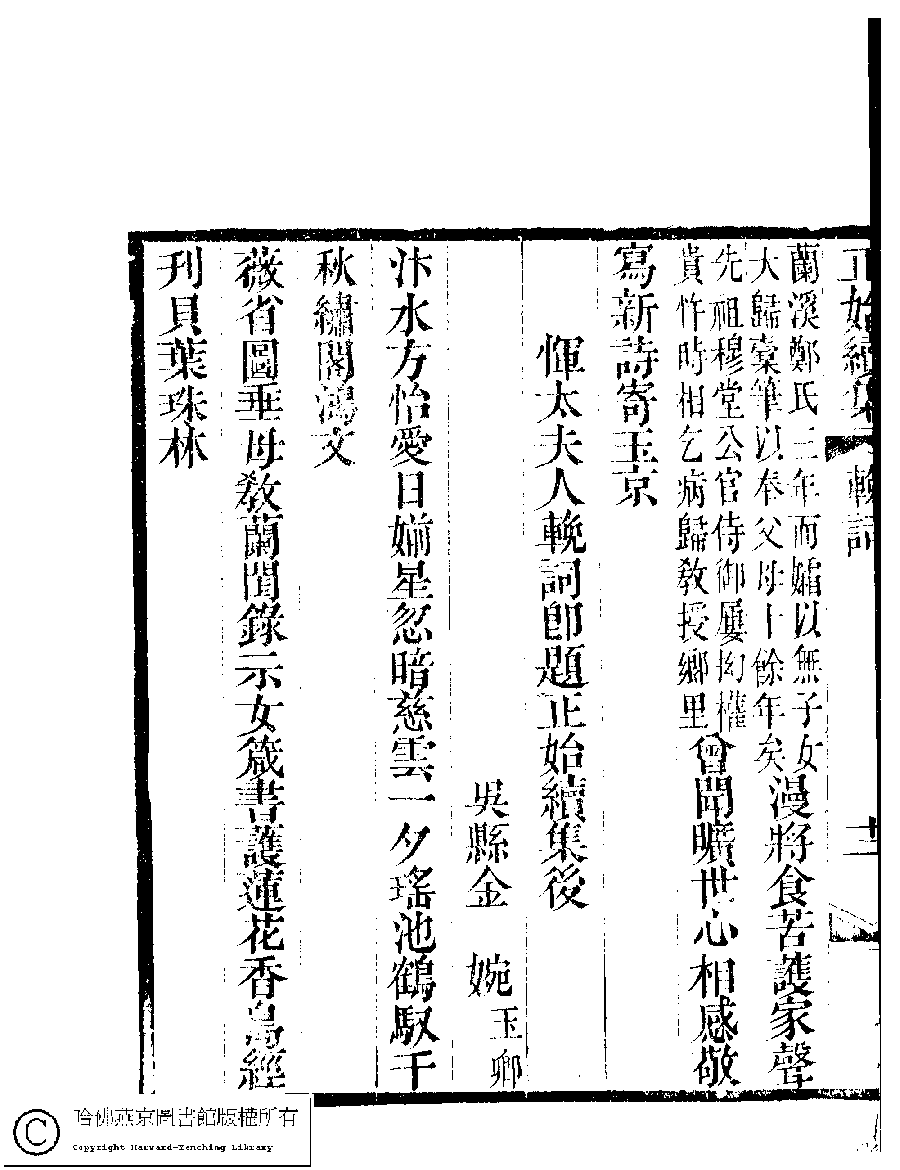 正始續集 輓詞 十二
蘭溪鄭氏三年而孀以無子女
大歸橐筆以奉父母十餘年矣
漫將食苦護家聲
先祖穆堂公官侍御屢拘權
貴忤時相乞病歸教授鄉里
曾聞曠世心相感敬
寫新詩寄玉京
惲太夫人輓詞即題正始續集後
吳縣金 婉 玉卿
汴水方怡愛日婻星忽暗慈雲一夕瑤池鶴馭千
秋繡閣鴻文
薇省圖垂母教蘭閨錄示女箴書護蓮花香島經
刊貝葉珠林
哈佛燕京圖書館版權所有
Copyright Harvard-Yenching Library